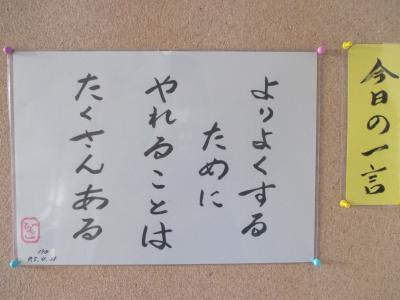 今日の一言
よりよくする
ために
やれることは
たくさんある